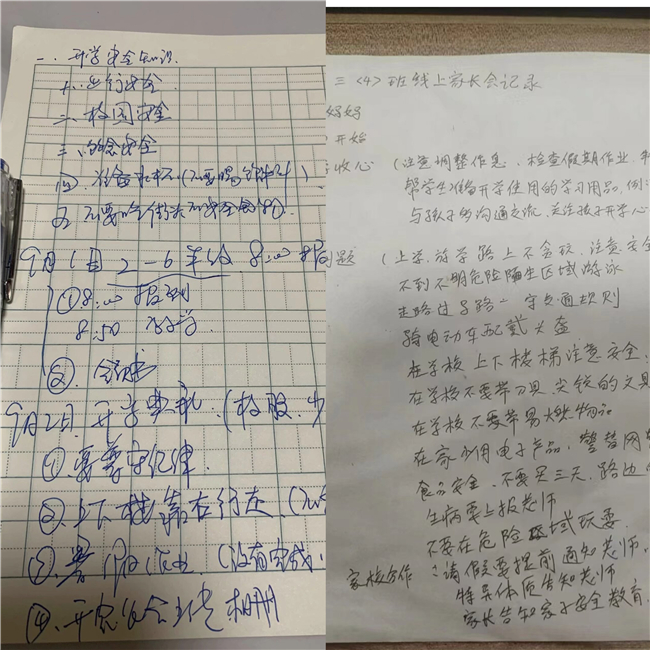 一.开学安全知识.
1.出行安全
二.校园安全
三.饮食安全
四.准备水杯(不要喝
五.不要吃街头不安全食品.
9月1日 2-6年级 8:00
①8:00 报到
8:50 放学.
②.
9月2日.开学典礼.(校服.少
①.要遵守纪律.
②.上下楼靠右行走.
③.暑假作业.(没有完成.
④.
三〈4〉班线上家长会记录
好好
开始
收心 (注意调整作息、检查假期作业,
帮学生准备开学使用的学习用品,例:
与孩子多沟通交流,关注孩子开学心
问题 (上学、放学路上不贪玩,注意安全
不到不明危险陌生区域游泳
走路过马路一守交通规则
骑电动车配戴头盔
在学校上下楼梯注意安全,
在学校不要带刀具,尖锐的文具
在学校不要带易燃物品
在家少用电子产品,警替网
食品安全,不要买三无,路边
生病要上报老师
不要在危险区域玩耍.
家校合作 :请假要提前通知老师.
特异体质告知老师
家长告知孩子安全教育.